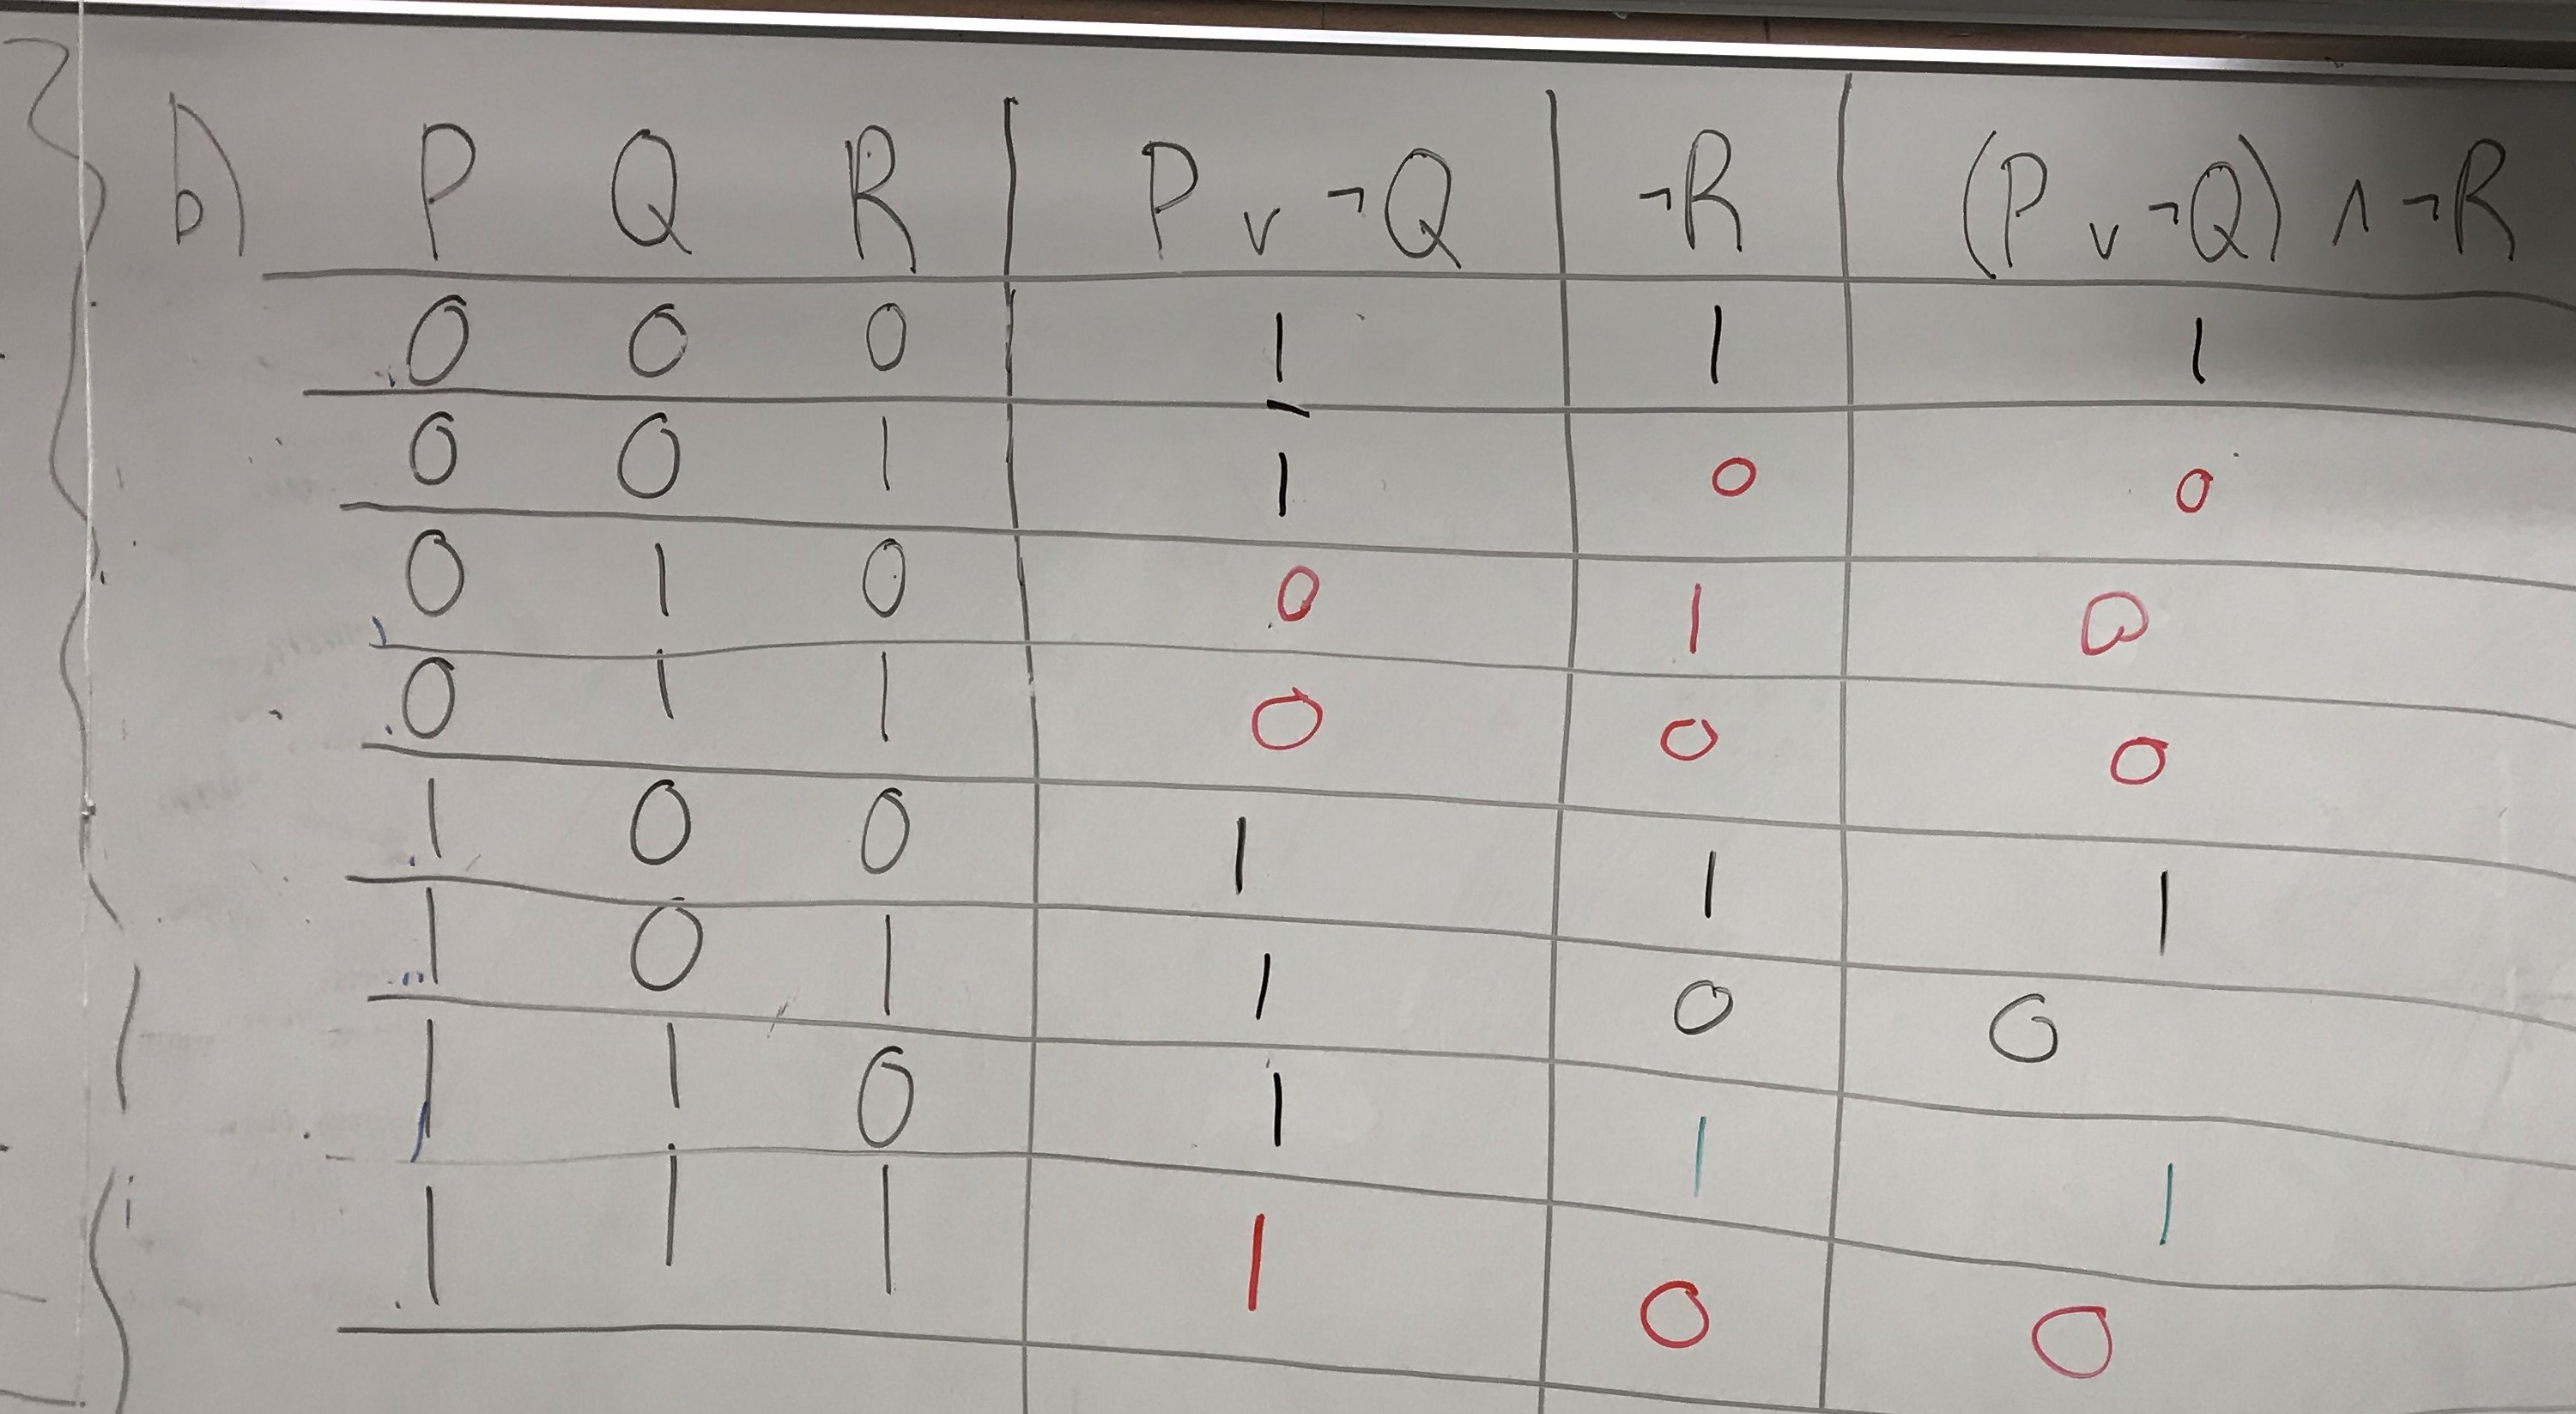 b) P Q R P ∨ ¬Q ¬R (P ∨ ¬Q) ∧ ¬R
0 0 0 1 1 1
0 0 1 1 0 0
0 1 0 0 1 0
0 1 1 0 0 0
1 0 0 1 1 1
1 0 1 1 0 0
1 1 0 1 1 1
1 1 1 1 0 0